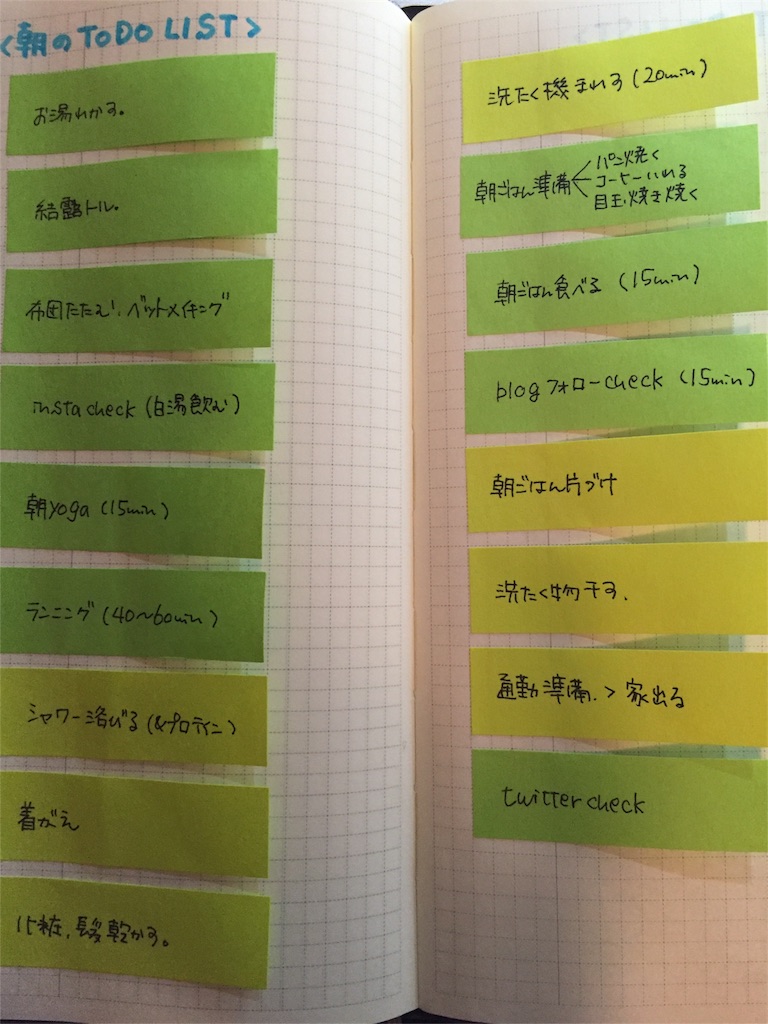 <朝のTODO LIST>
お湯わかす。
結露トル。
布団たたむ、ベットメイキング
insta check (白湯飲む)
朝yoga (15min)
ランニング (40〜60min)
シャワー浴びる (&プロテイン)
着がえ
化粧、髪乾かす。
洗たく機まわす (20min)
朝ごはん準備
パン焼く
コーヒーいれる
目玉焼き焼く
朝ごはん食べる (15min)
blogフォローcheck (15min)
朝ごはん片づけ
洗たく物干す.
通勤準備. > 家出る
twitter check